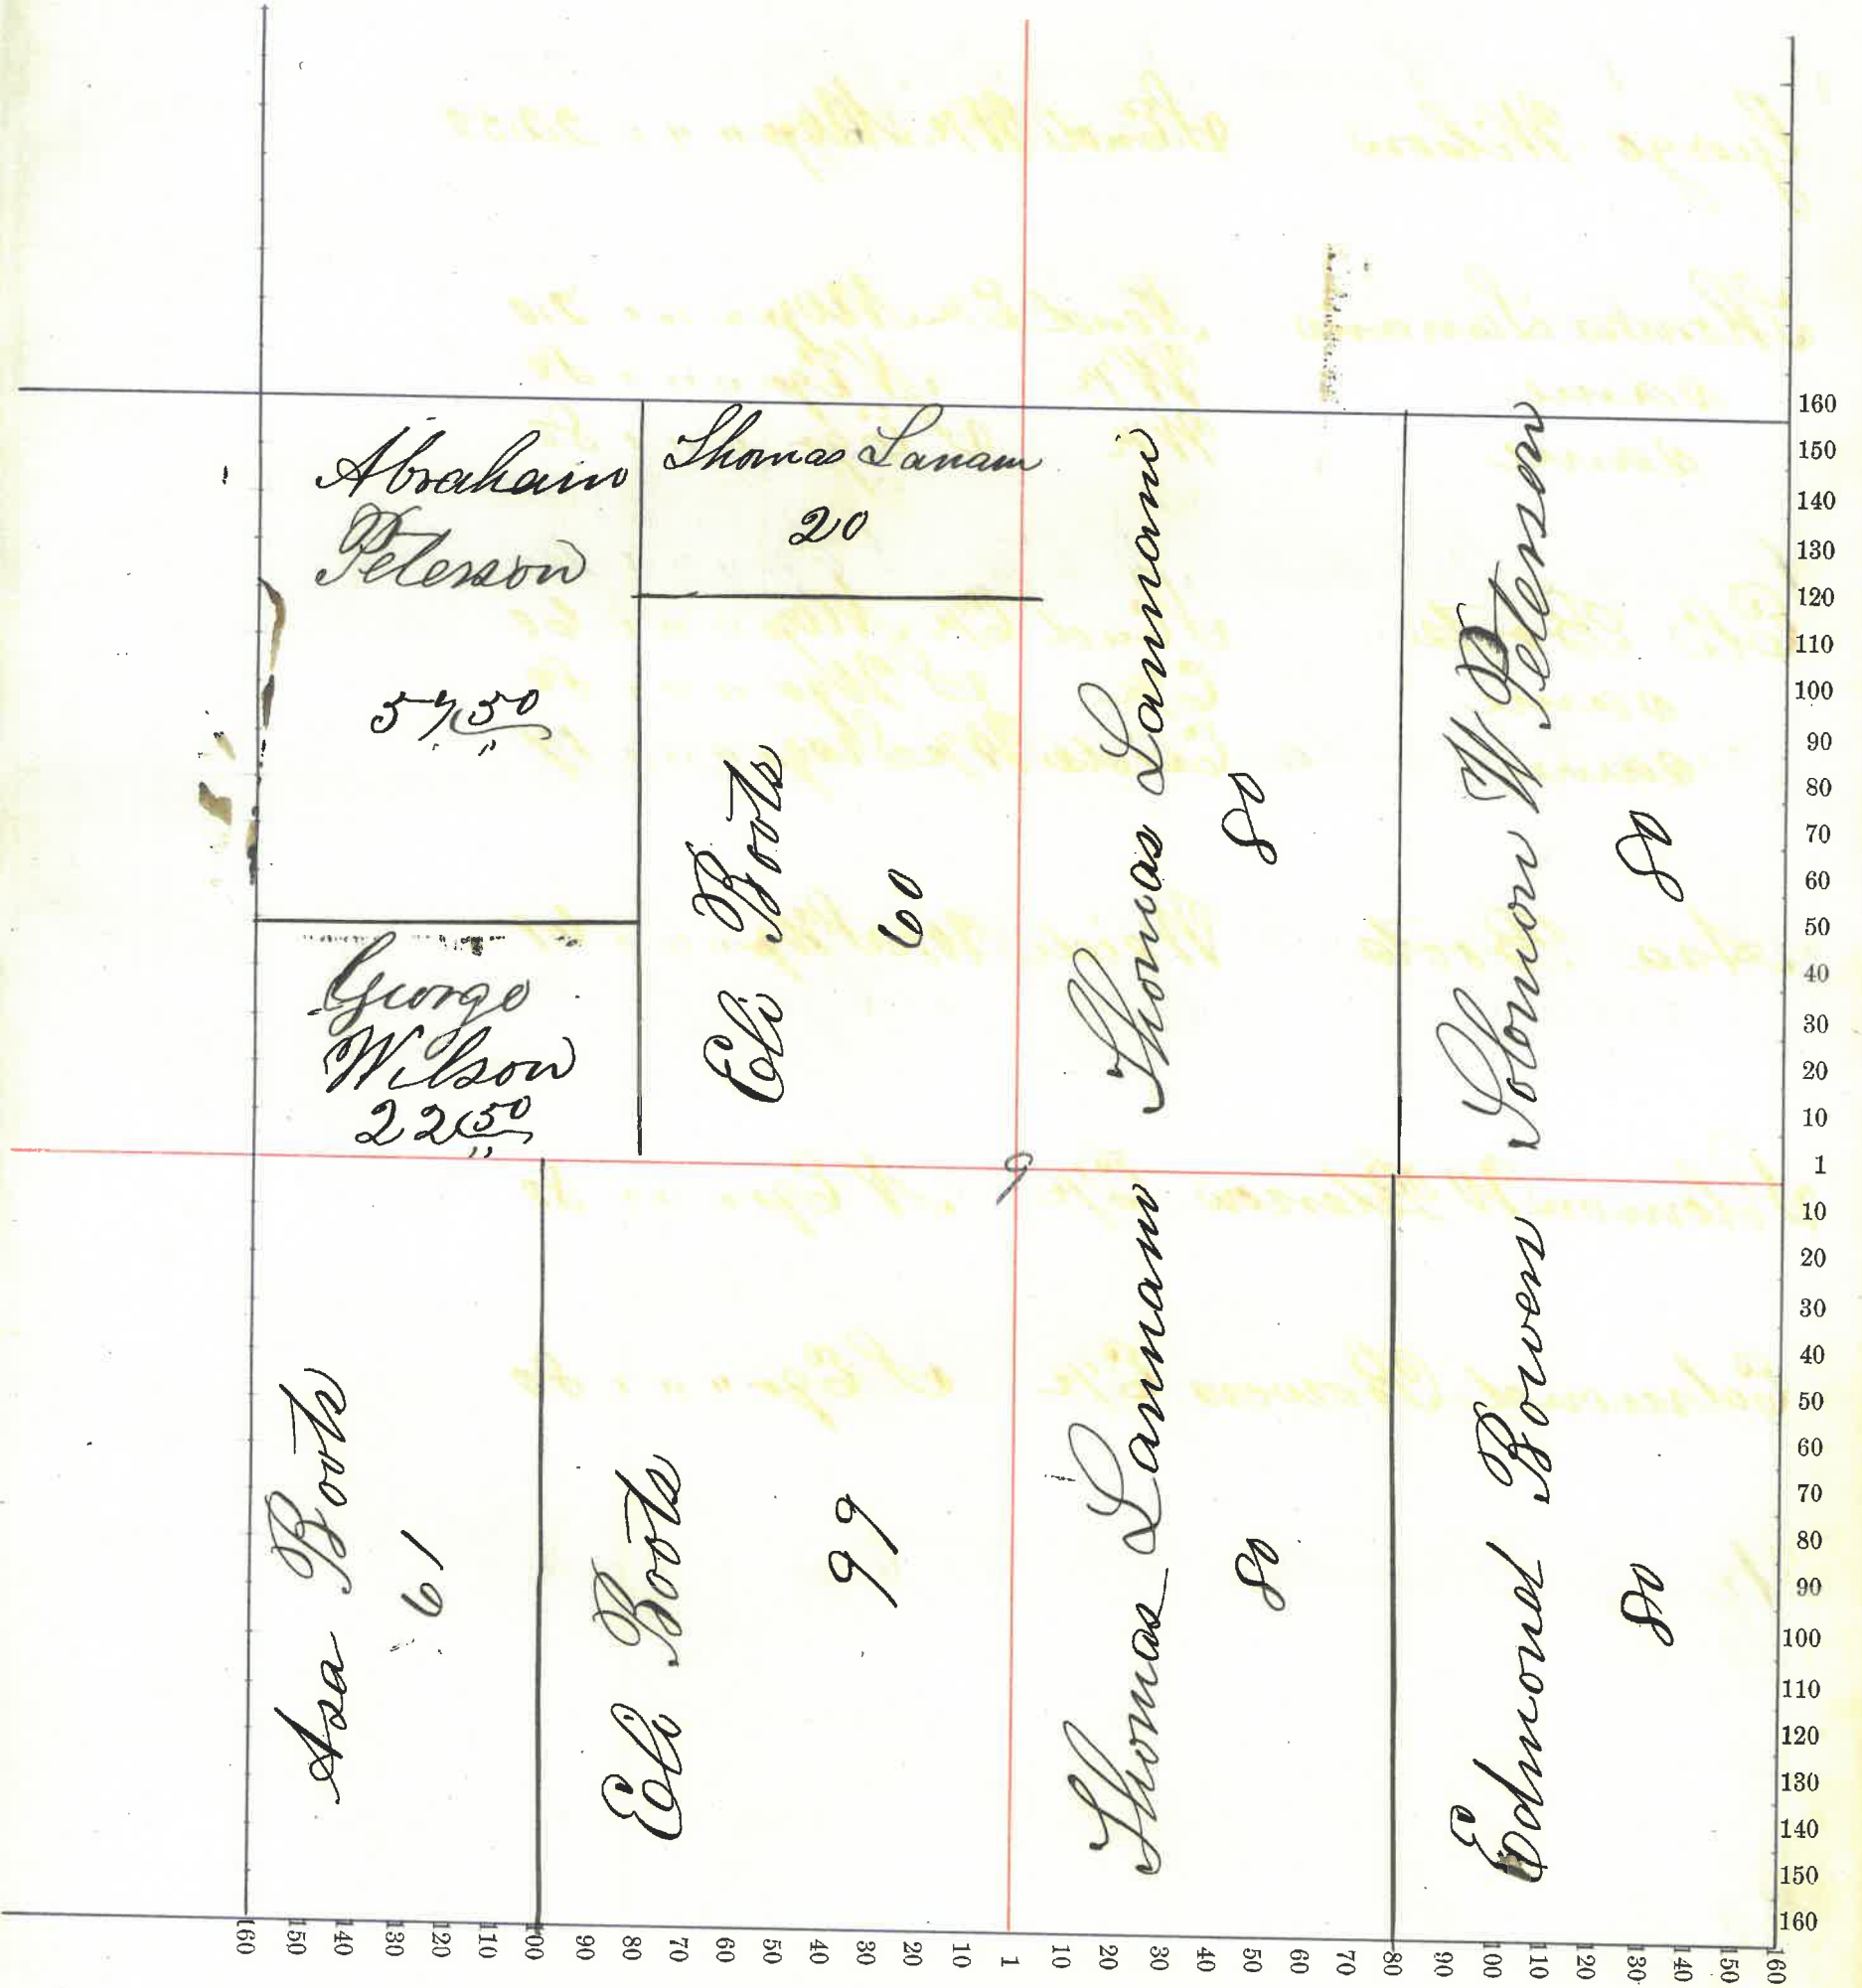 Abraham
Peterson
57 50
"
Thomas Lanam
20
George
Wilson
22 50
"
Eli Boots
60
Thomas Lanmam
80
Solomon W Peterson
80
9
Asa Boots
61
Eli Boots
99
Thomas Lanmam
80
Edmond Bowen
80
160
150
140
130
120
110
100
90
80
70
60
50
40
30
20
10
1
10
20
30
40
50
60
70
80
90
100
110
120
130
140
150
160
160 150 140 130 120 110 100 90 80 70 60 50 40 30 20 10 1 10 20 30 40 50 60 70 80 90 100 110 120 130 140 150 160